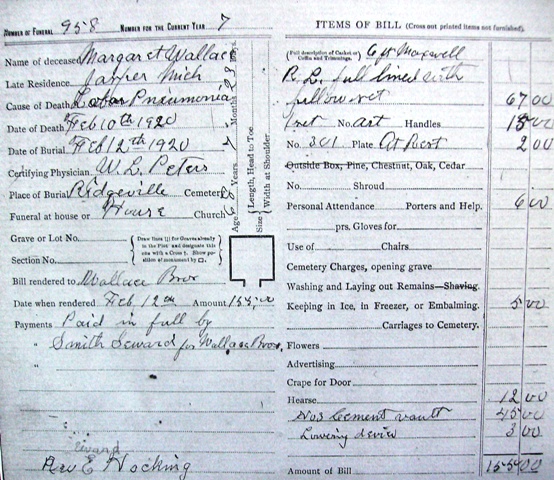 NUMBER OF FUNERAL 958 NUMBER FOR THE CURRENT YEAR 7
Name of deceased Margaret Wallace
Late Residence Jasper Mich
Cause of Death Lobar Pneumonia
Date of Death Feb 10th 1920
Date of Burial Feb 12th 1920
Certifying Physician W. L. Peters
Place of Burial Ridgeville Cemetery
Funeral at house or House Church
Age Years Months Days
Size { Length, Head to Toe
Width at Shoulder
Grave or Lot No.
Section No.
{ Draw lines (|) for Graves already in the Plot and designate this one with a Cross †. Show position of monument by □. }
Bill rendered to Wallace Bros
Date when rendered Feb 12th Amount 155.00
Payments Paid in full by
" Smith Seward for Wallace Bros.
"
Rev E Hocking
ITEMS OF BILL (Cross out printed items not furnished).
(Full description of Casket or Coffin and Trimmings.) 6 ft Maxwell
full lined with
67 00
No. Art Handles 18 00
No. 301 Plate At Rest 2 00
Outside Box, Pine, Chestnut, Oak, Cedar
No. Shroud
Personal Attendance Porters and Help. 6 00
prs. Gloves for
Use of Chairs
Cemetery Charges, opening grave
Washing and Laying out Remains—Shaving.
Keeping in Ice, in Freezer, or Embalming. 5 00
Carriages to Cemetery.
Flowers
Advertising
Crape for Door
Hearse 12 00
No3 Cement vault 45 00
Lowering device 3 00
Amount of Bill 155 00